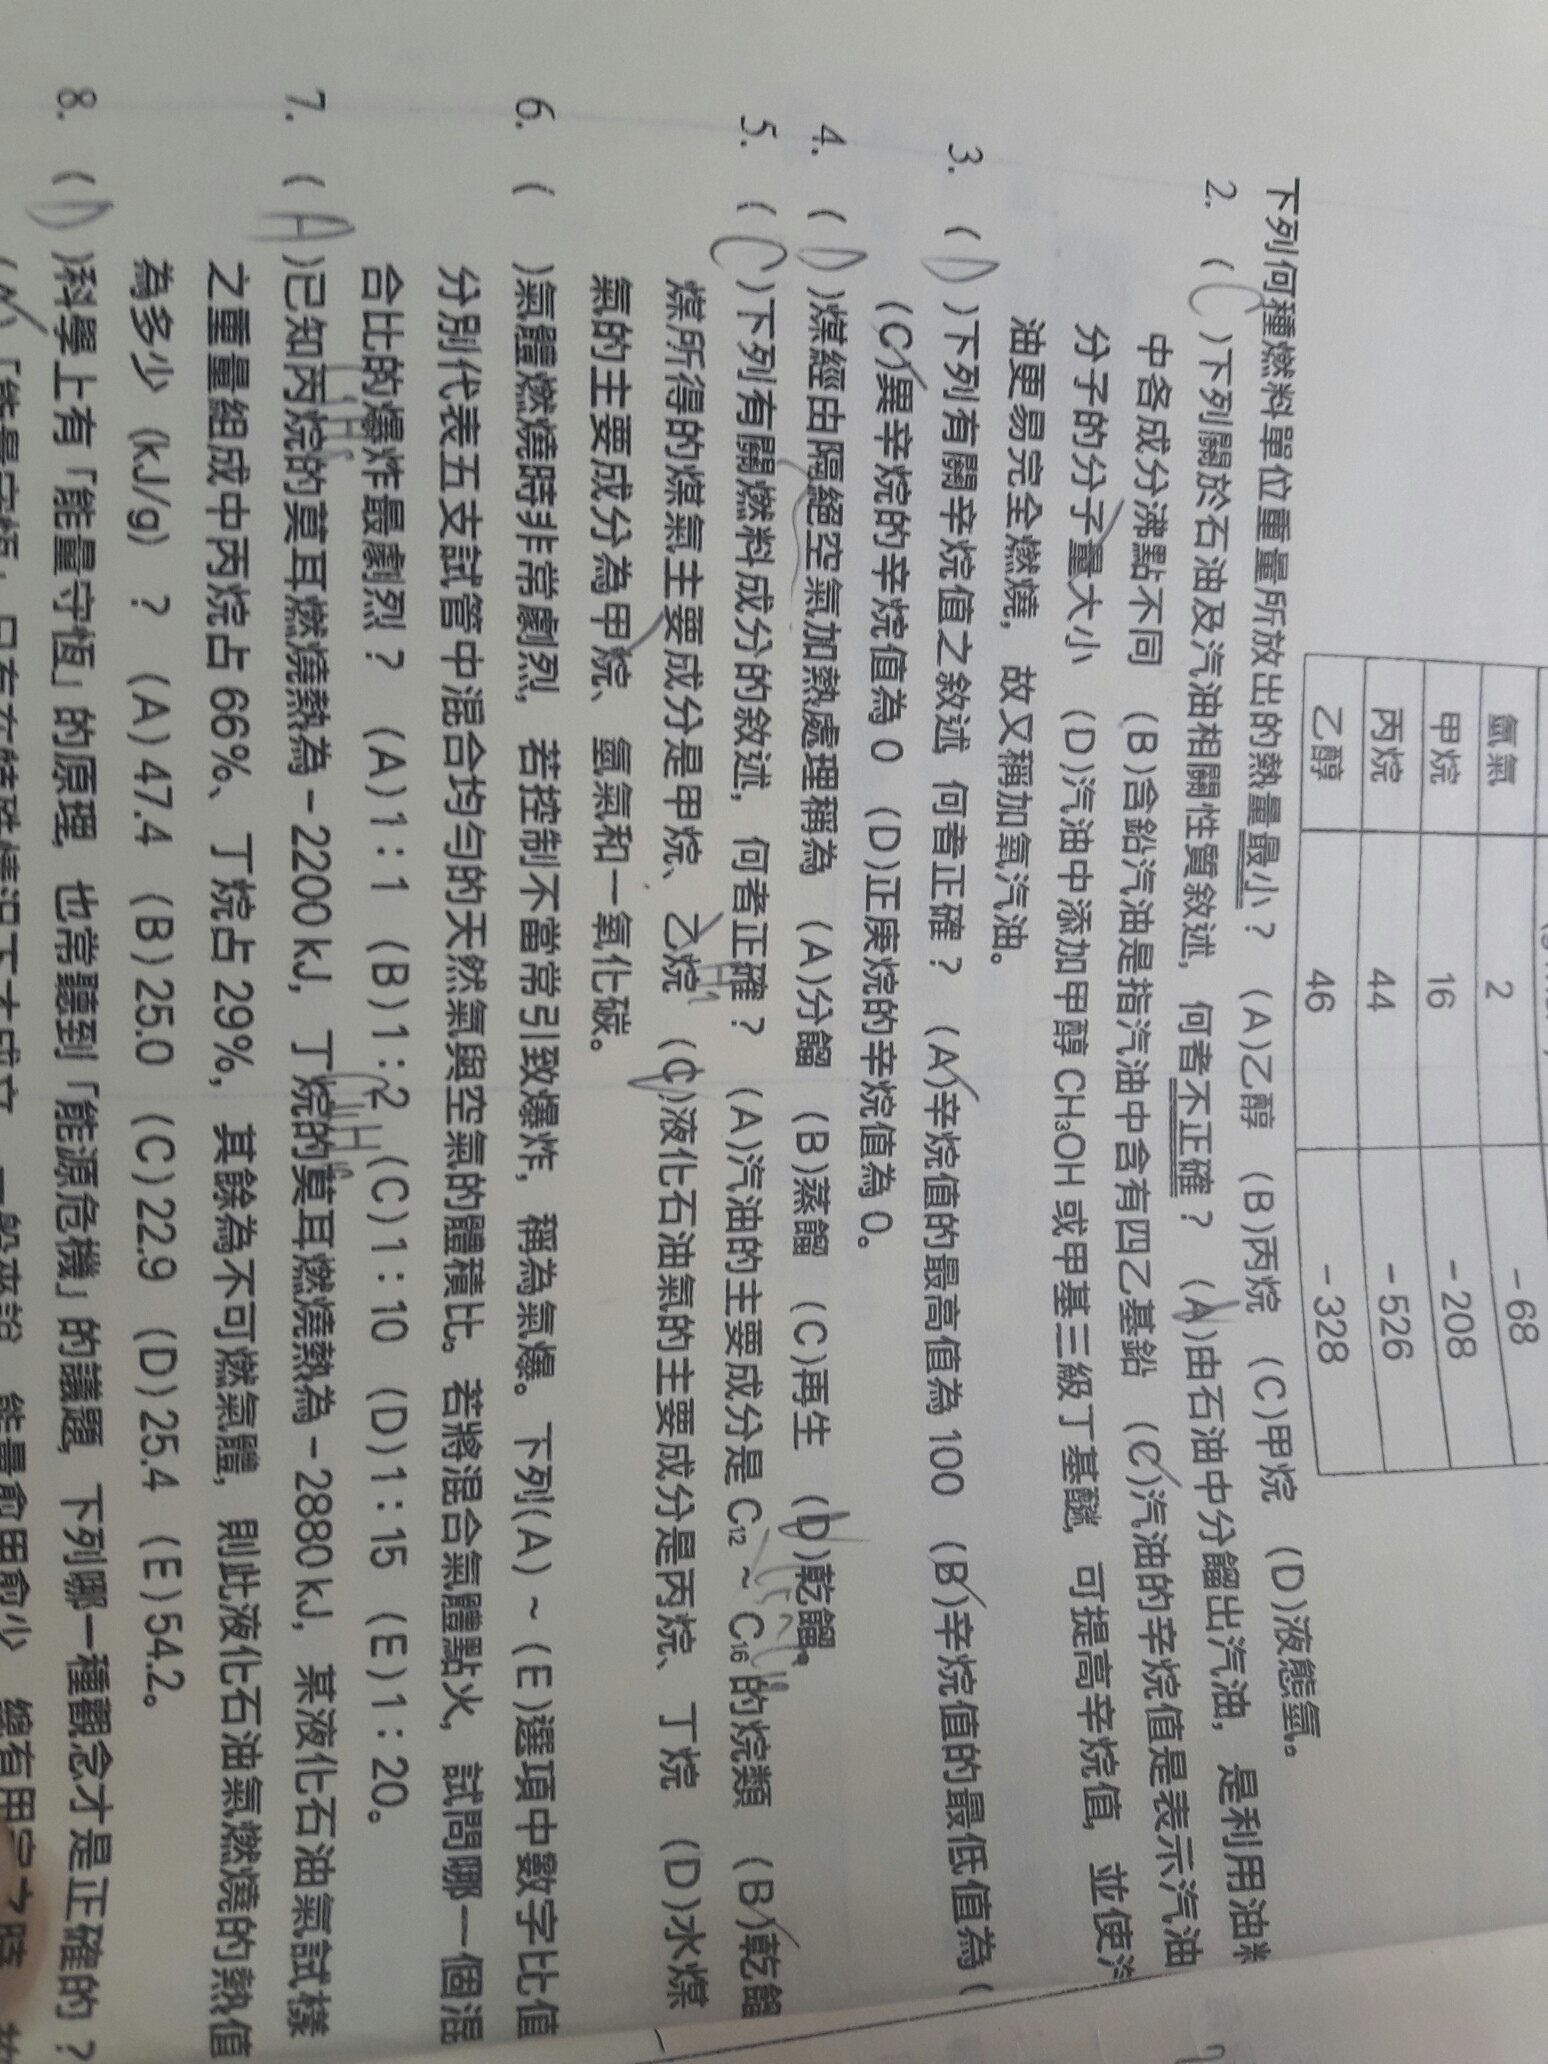 氫氣 2 -68
甲烷 16 -208
丙烷 44 -526
乙醇 46 -328
下列何種燃料單位重量所放出的熱量最小？ (A)乙醇 (B)丙烷 (C)甲烷 (D)液態氫。
2. (C)下列關於石油及汽油相關性質敘述，何者不正確？ (A)由石油中分餾出汽油，是利用油料
中各成分沸點不同 (B)含鉛汽油是指汽油中含有四乙基鉛 (C)汽油的辛烷值是表示汽油
分子的分子量大小 (D)汽油中添加甲醇 CH₃OH 或甲基三級丁基醚，可提高辛烷值，並使汽
油更易完全燃燒，故又稱加氧汽油。
3. (D)下列有關辛烷值之敘述 何者正確？ (A)辛烷值的最高值為 100 (B)辛烷值的最低值為
(C)異辛烷的辛烷值為 0 (D)正庚烷的辛烷值為 0。
4. (D)煤經由隔絕空氣加熱處理稱為 (A)分餾 (B)蒸餾 (C)再生 (D)乾餾。
5. (C)下列有關燃料成分的敘述，何者正確？ (A)汽油的主要成分是 C₁₂ ~ C₁₆ 的烷類 (B)乾餾
煤所得的煤氣主要成分是甲烷、乙烷 (C)液化石油氣的主要成分是丙烷、丁烷 (D)水煤
氣的主要成分為甲烷、氫氣和一氧化碳。
6. ( )氣體燃燒時非常劇烈，若控制不當常引致爆炸，稱為氣爆。下列(A) ~ (E)選項中數字比值
分別代表五支試管中混合均勻的天然氣與空氣的體積比。若將混合氣體點火，試問哪一個混
合比的爆炸最劇烈？ (A)1：1 (B)1：2 (C)1：10 (D)1：15 (E)1：20。
7. (A)已知丙烷的莫耳燃燒熱為－2200 kJ，丁烷的莫耳燃燒熱為－2880 kJ，某液化石油氣試樣
之重量組成中丙烷占 66%、丁烷占 29%，其餘為不可燃氣體，則此液化石油氣燃燒的熱值
為多少 (kJ/g) ？ (A)47.4 (B)25.0 (C)22.9 (D)25.4 (E)54.2。
8. (D)科學上有「能量守恆」的原理，也常聽到「能源危機」的議題，下列哪一種觀念才是正確的？